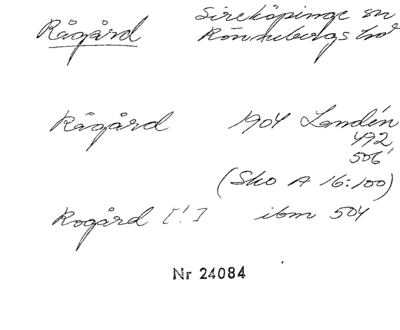 Rågård Sireköpinge sn
Rönnebergs hd
Rågård 1904 Landén
492,
506
(Sko A 16:100)
Rogård [!] ibm 504
Nr 24084